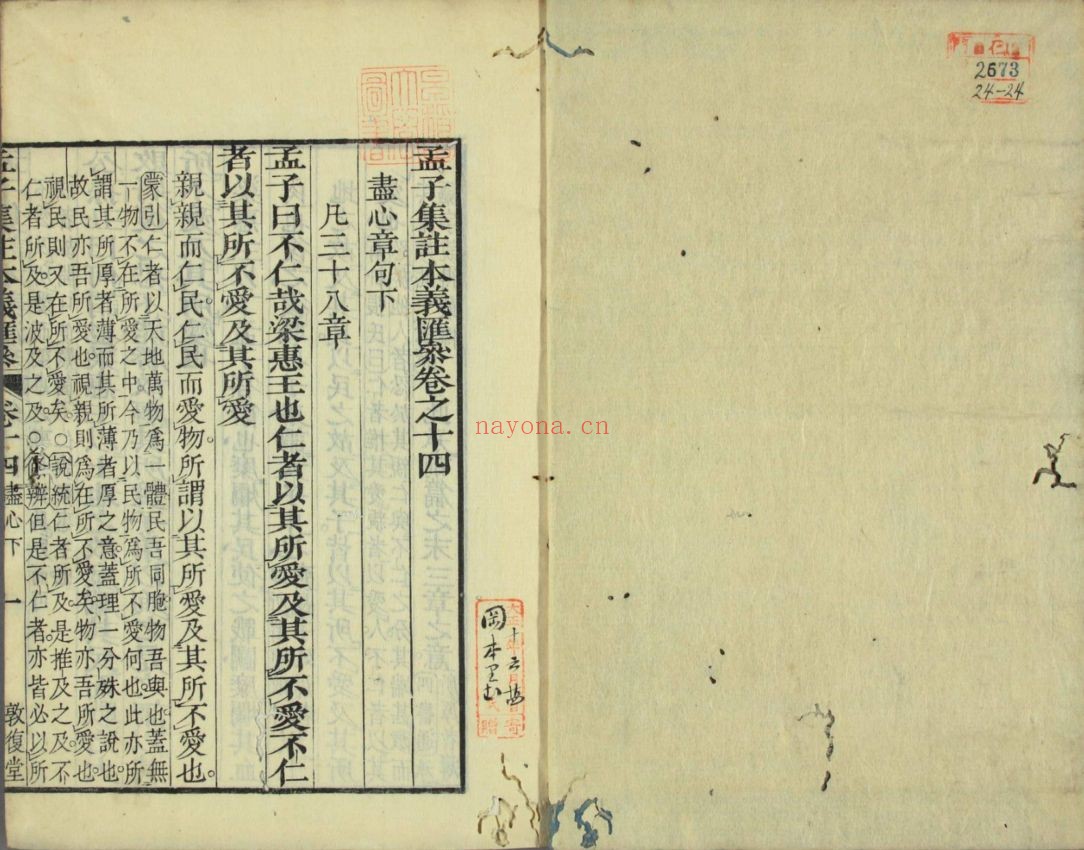 2673
24-24
孟子集註本義匯叅卷之十四
盡心章句下
凡三十八章
孟子曰不仁哉梁惠王也仁者以其所愛及其所不愛不仁
者以其所不愛及其所愛
親親而仁民仁民而愛物所謂以其所愛及其所不愛也
蒙引仁者以天地萬物爲一體民吾同胞物吾與也蓋無
一物不在所愛之中今乃以民物爲所不愛何也此亦所
謂其所厚者薄而其所薄者厚之意蓋理一分殊之說也
故民亦吾所愛也視親則爲在所不愛矣物亦吾所愛也
視民則又在所不愛矣○說統仁者所及是推及之及不
仁者所及是波及之及○條辨但是不仁者亦皆必以所
孟子集註本義匯叅 卷十四 盡心下 一 敦復堂
岡本
nayona.cn